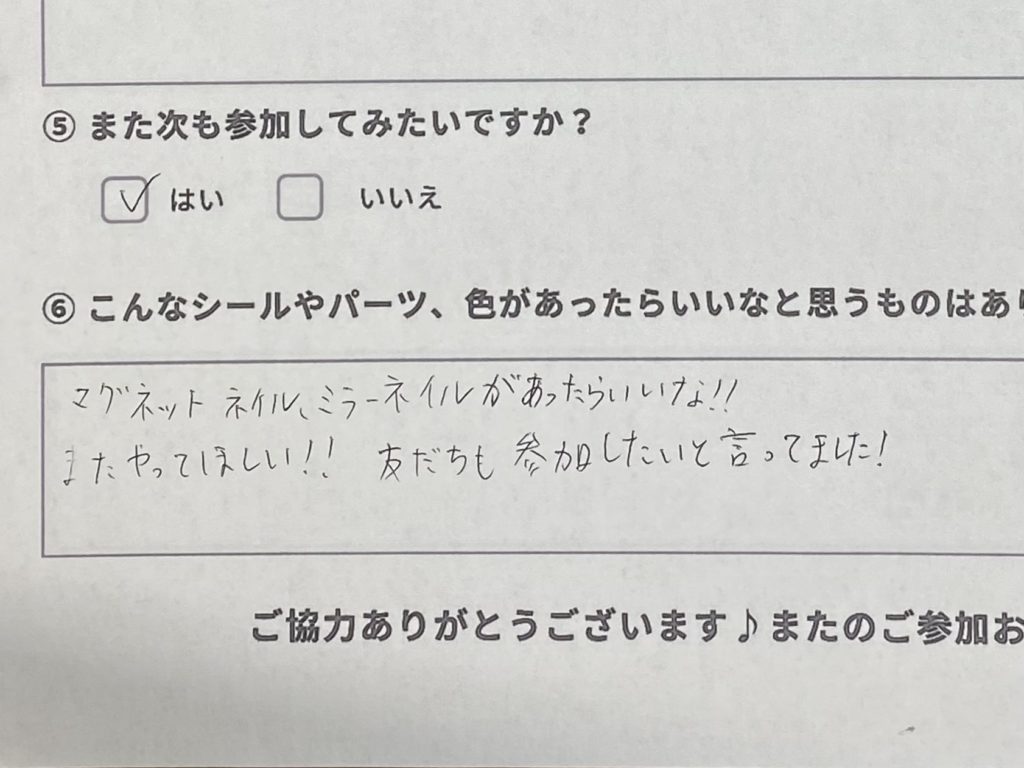 ⑤ また次も参加してみたいですか？
はい いいえ
⑥ こんなシールやパーツ、色があったらいいなと思うものはあり
マグネットネイル、ミラーネイルがあったらいいな!!
またやってほしい!! 友だちも参加したいと言ってました!
ご協力ありがとうございます♪またのご参加お